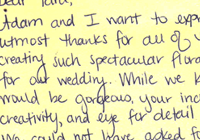 Dear Tara,
Adam and I want to expr
utmost thanks for all of y
creating such spectacular flora
for our wedding. While we k
would be gorgeous, your inc
creativity, and eye for detail
We could not have asked f